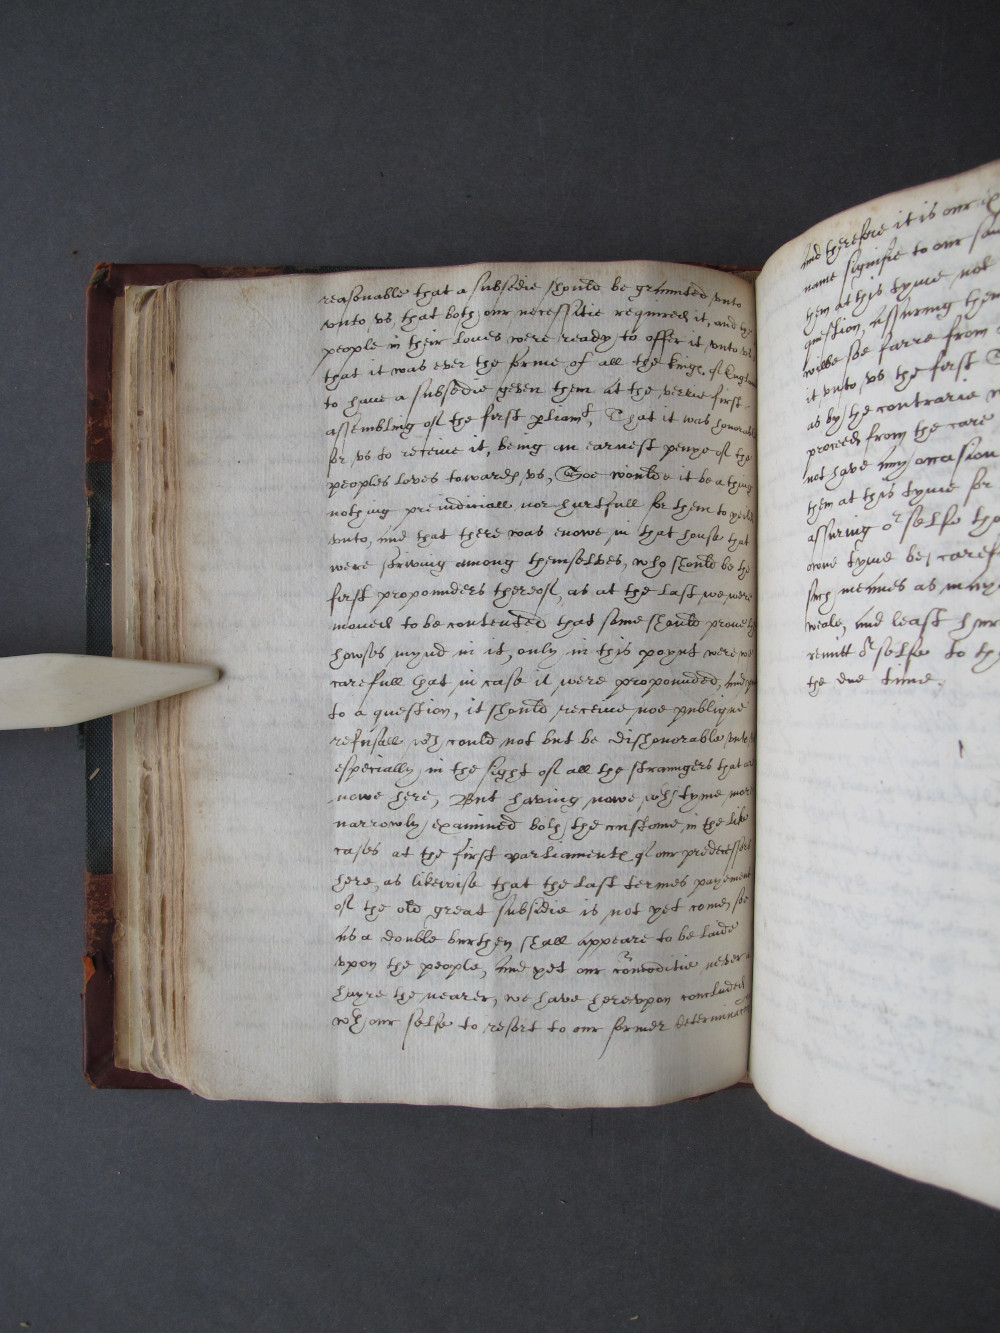 reasonable that a subsedie should be graunted unto
vnto vs, that both our necessitie required it, and the
people in their loues were ready to offer it vnto vs
that it was ever the forme of all the kings of England
to haue a subsedie geven them at the verrie first
assembling of the first p'liamt, That it was honorable
for vs to receiue it, being an earnest penye of the
peoples loves towards vs, Soe would it be a thing
nothing preiudiciall nor hurtfull for them to yeild
vnto, and that there was enowe in that house that
were striving among themselves, who should be the
first propounders thereof, as at the last we were
moued to be contented that some should prove the
howses mynd in it, only in this poynt were we
carefull that in case it were propounded, and put
to a question, it should receiue noe publique
refusall wch could not but be dishonorable vnto vs
especially in the sight of all the straungers that are
nowe here, But having nowe wth tyme more
narrowly examined both the custome in the like
cases at the first parliaments of our predecessors
here, as likewise that the last termes payement
of the old great subsidie is not yet come, soe
as a double burthen shall appeare to be laide
vpon the people, and yet our comoditie never a
hayre the nearer, we have herevpon concluded
wth our selfe to resort to our former determination
and therefore it is our
name signifie to our
them at this tyme not
question, Assuring them
wilbe soe farre from
it vnto vs the first
as by the contrarie
proceed from the care
not have any occasion
them at this tyme for
assuring or selfe
owne tyme be
such meanes as many
weale, and least
remitt or selfe to
the due time.